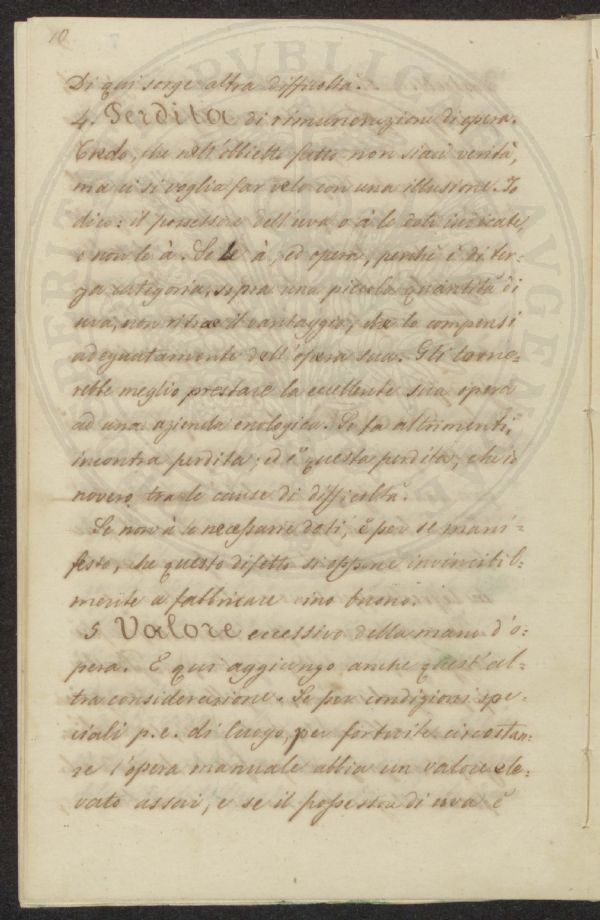 10
Di qui sorge altra difficoltà.
4. Perdita di rimunerazione di opera.
Credo, che nell'obbietto fatto non siavi verità,
ma ci si voglia far velo con una illusione. Io
dico: il possessore dell'uva o à le doti indicate,
o non le à. Se le à, ed opera, perchè è di ter=
za categoria, sopra una piccola quantità di
uva, non ritrae il vantaggio, che lo compensi
adeguatamente dell'opera sua. Gli torne=
rebbe meglio prestare la eccellente sua opera
ad una azienda enologica. Se fa altrimenti,
incontra perdita; ed è questa perdita, che io
novero tra le cause di difficoltà.
Se non à le necessarie doti, è per se mani=
festo, che questo difetto si oppone invincibil=
mente a fabbricare vino buono.
5 Valore eccessivo della mano d'o=
pera. E qui aggiungo anche quest'al=
tra considerazione. Se per condizioni spe=
ciali p.e. di luogo, per fortuite circostan=
ze l'opera manuale abbia un valore ele=
vato assai, e se il possessore di uva è